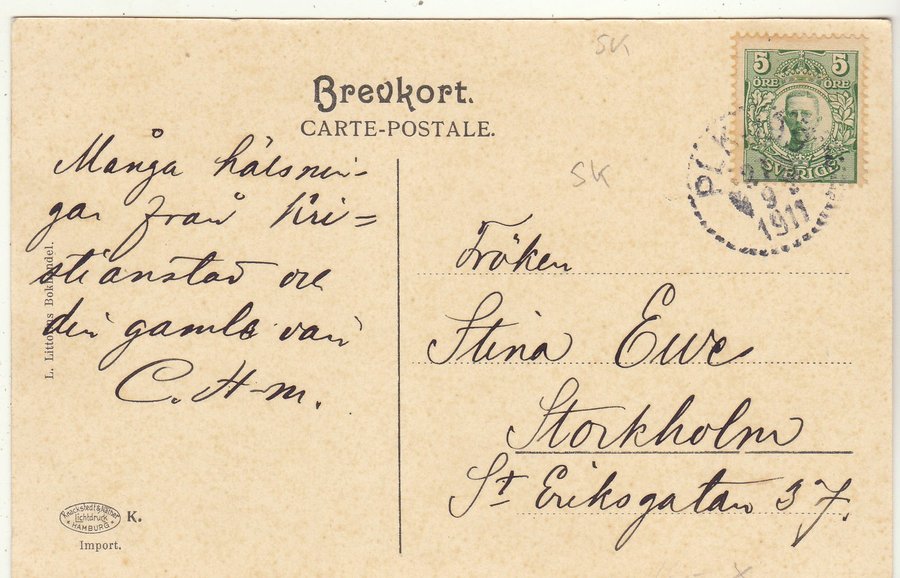 SK
5 5
ÖRE ÖRE
SVERIGE
Brevkort.
CARTE-POSTALE.
SK
PLK
9
1911
Många hälsnin-
gar från Kri=
stianstad
din gamle vän
C. H-m.
Fröken
Stina Ewe
Stockholm
St Eriksgatan 37.
L. Littorins Bokhandel.
Knackstedt & Näther
Lichtdruck
HAMBURG
K.
Import.